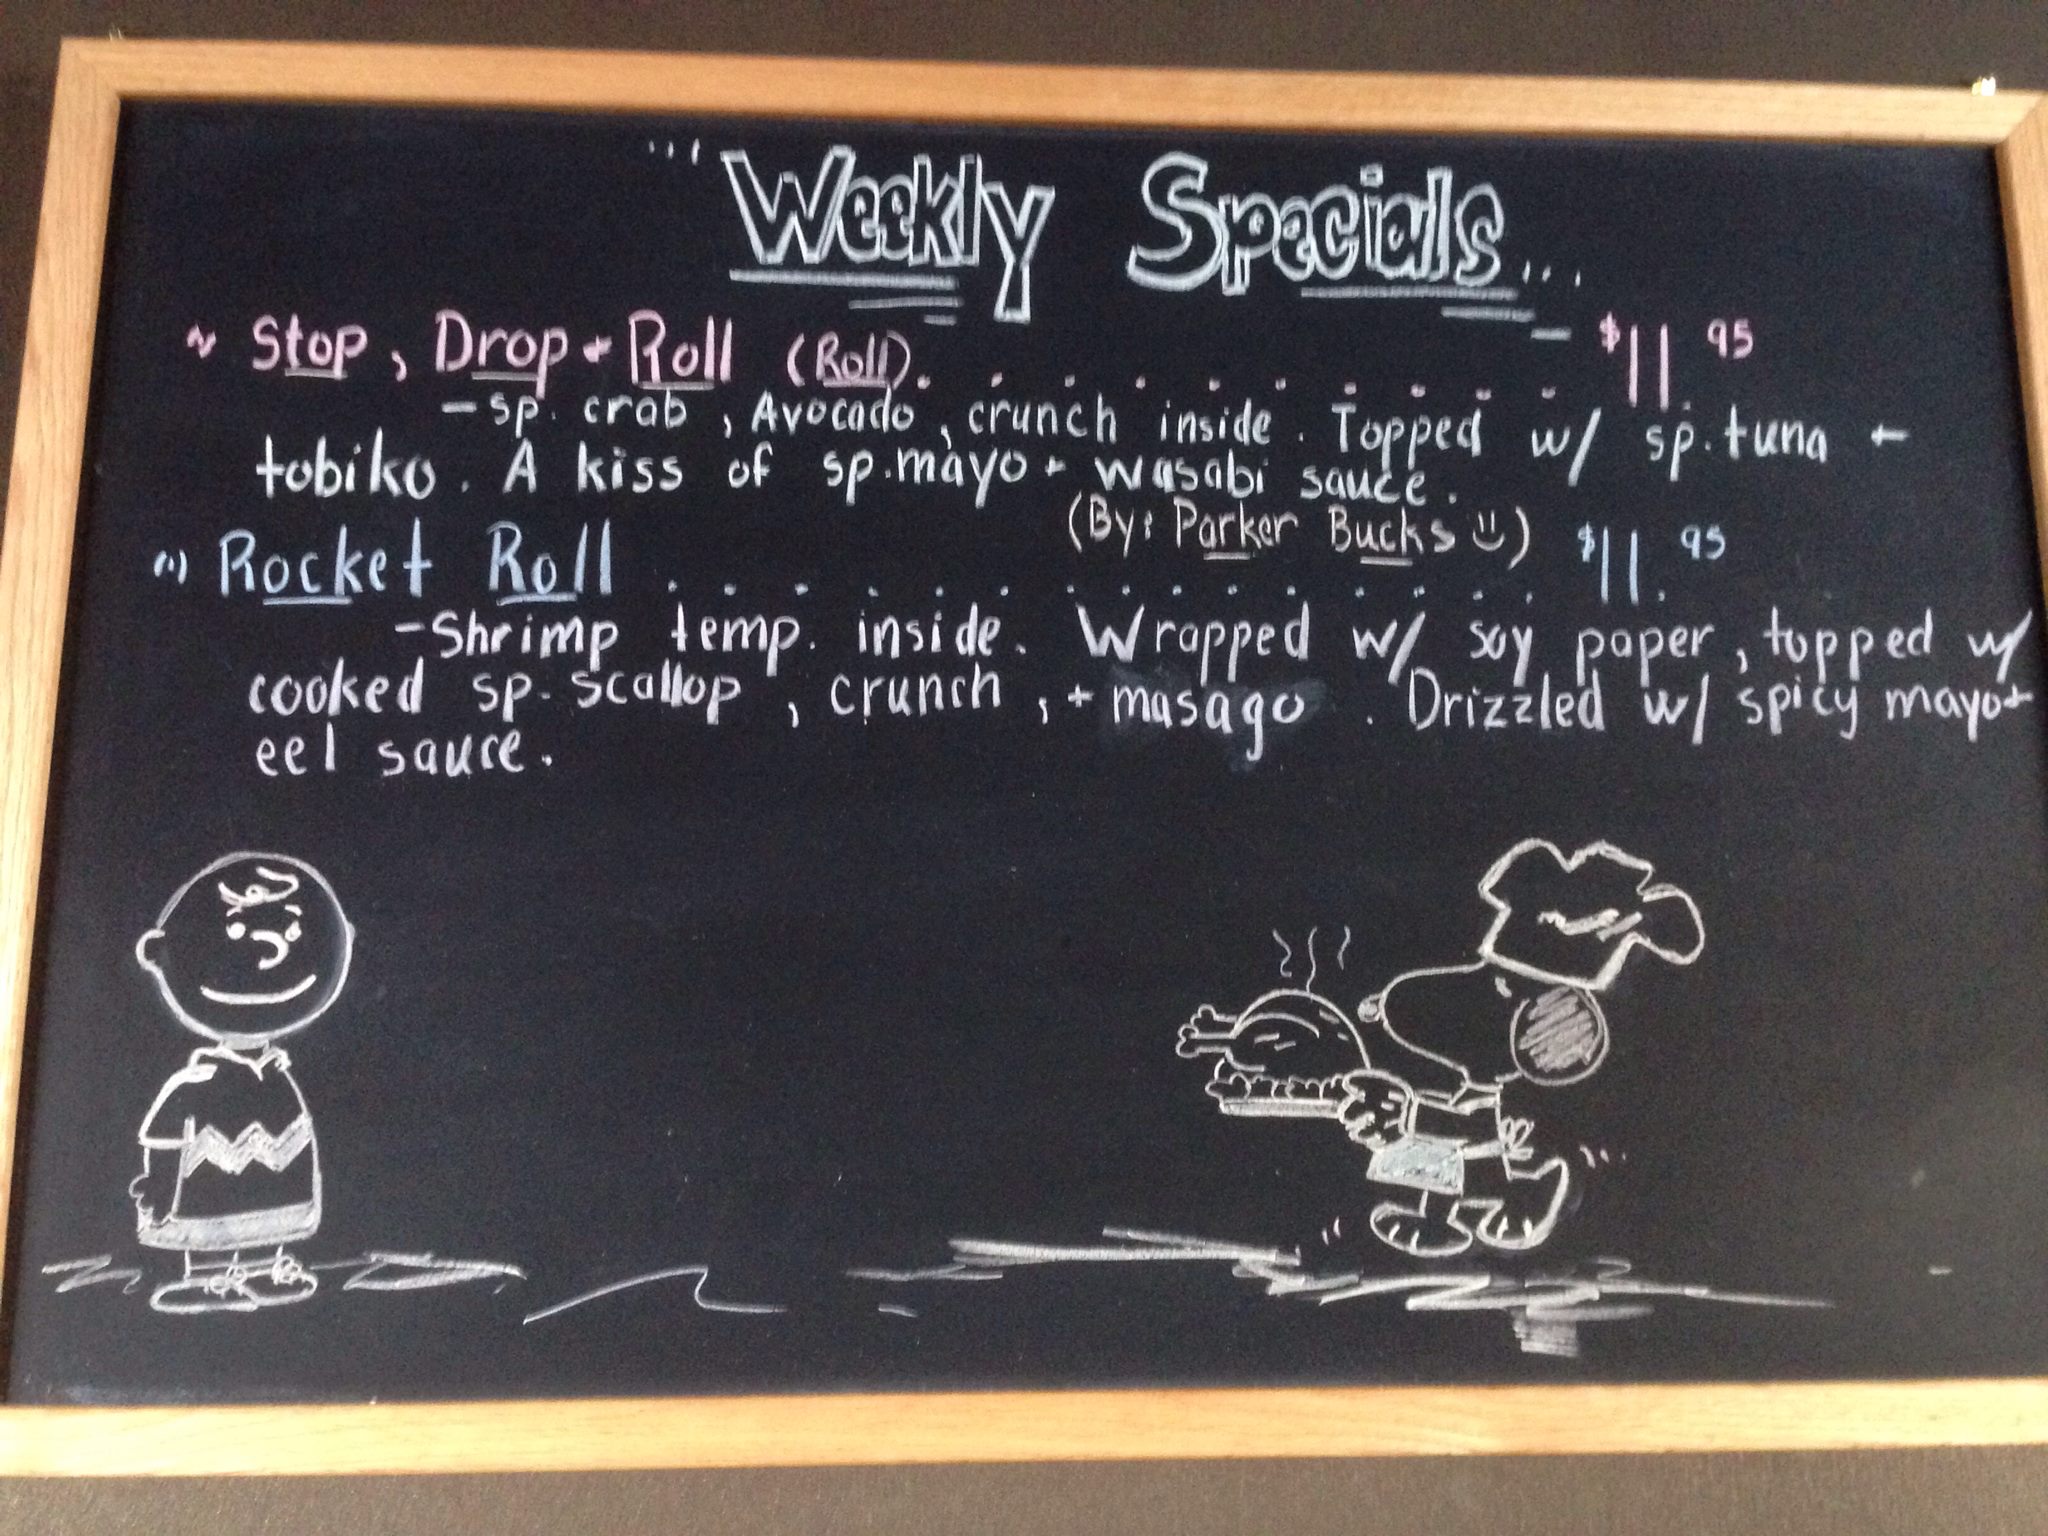 Weekly Specials...
~ Stop, Drop + Roll (Roll). . . . . . . . . . $11.95
- sp. crab, Avocado, crunch inside. Topped w/ sp. tuna +
tobiko. A kiss of sp. mayo + wasabi sauce.
(By: Parker Bucks :))
~ Rocket Roll . . . . . . . . . . . . . . $11.95
- Shrimp temp. inside. Wrapped w/ soy paper, topped w/
cooked sp. scallop, crunch, + masago. Drizzled w/ spicy mayo +
eel sauce.